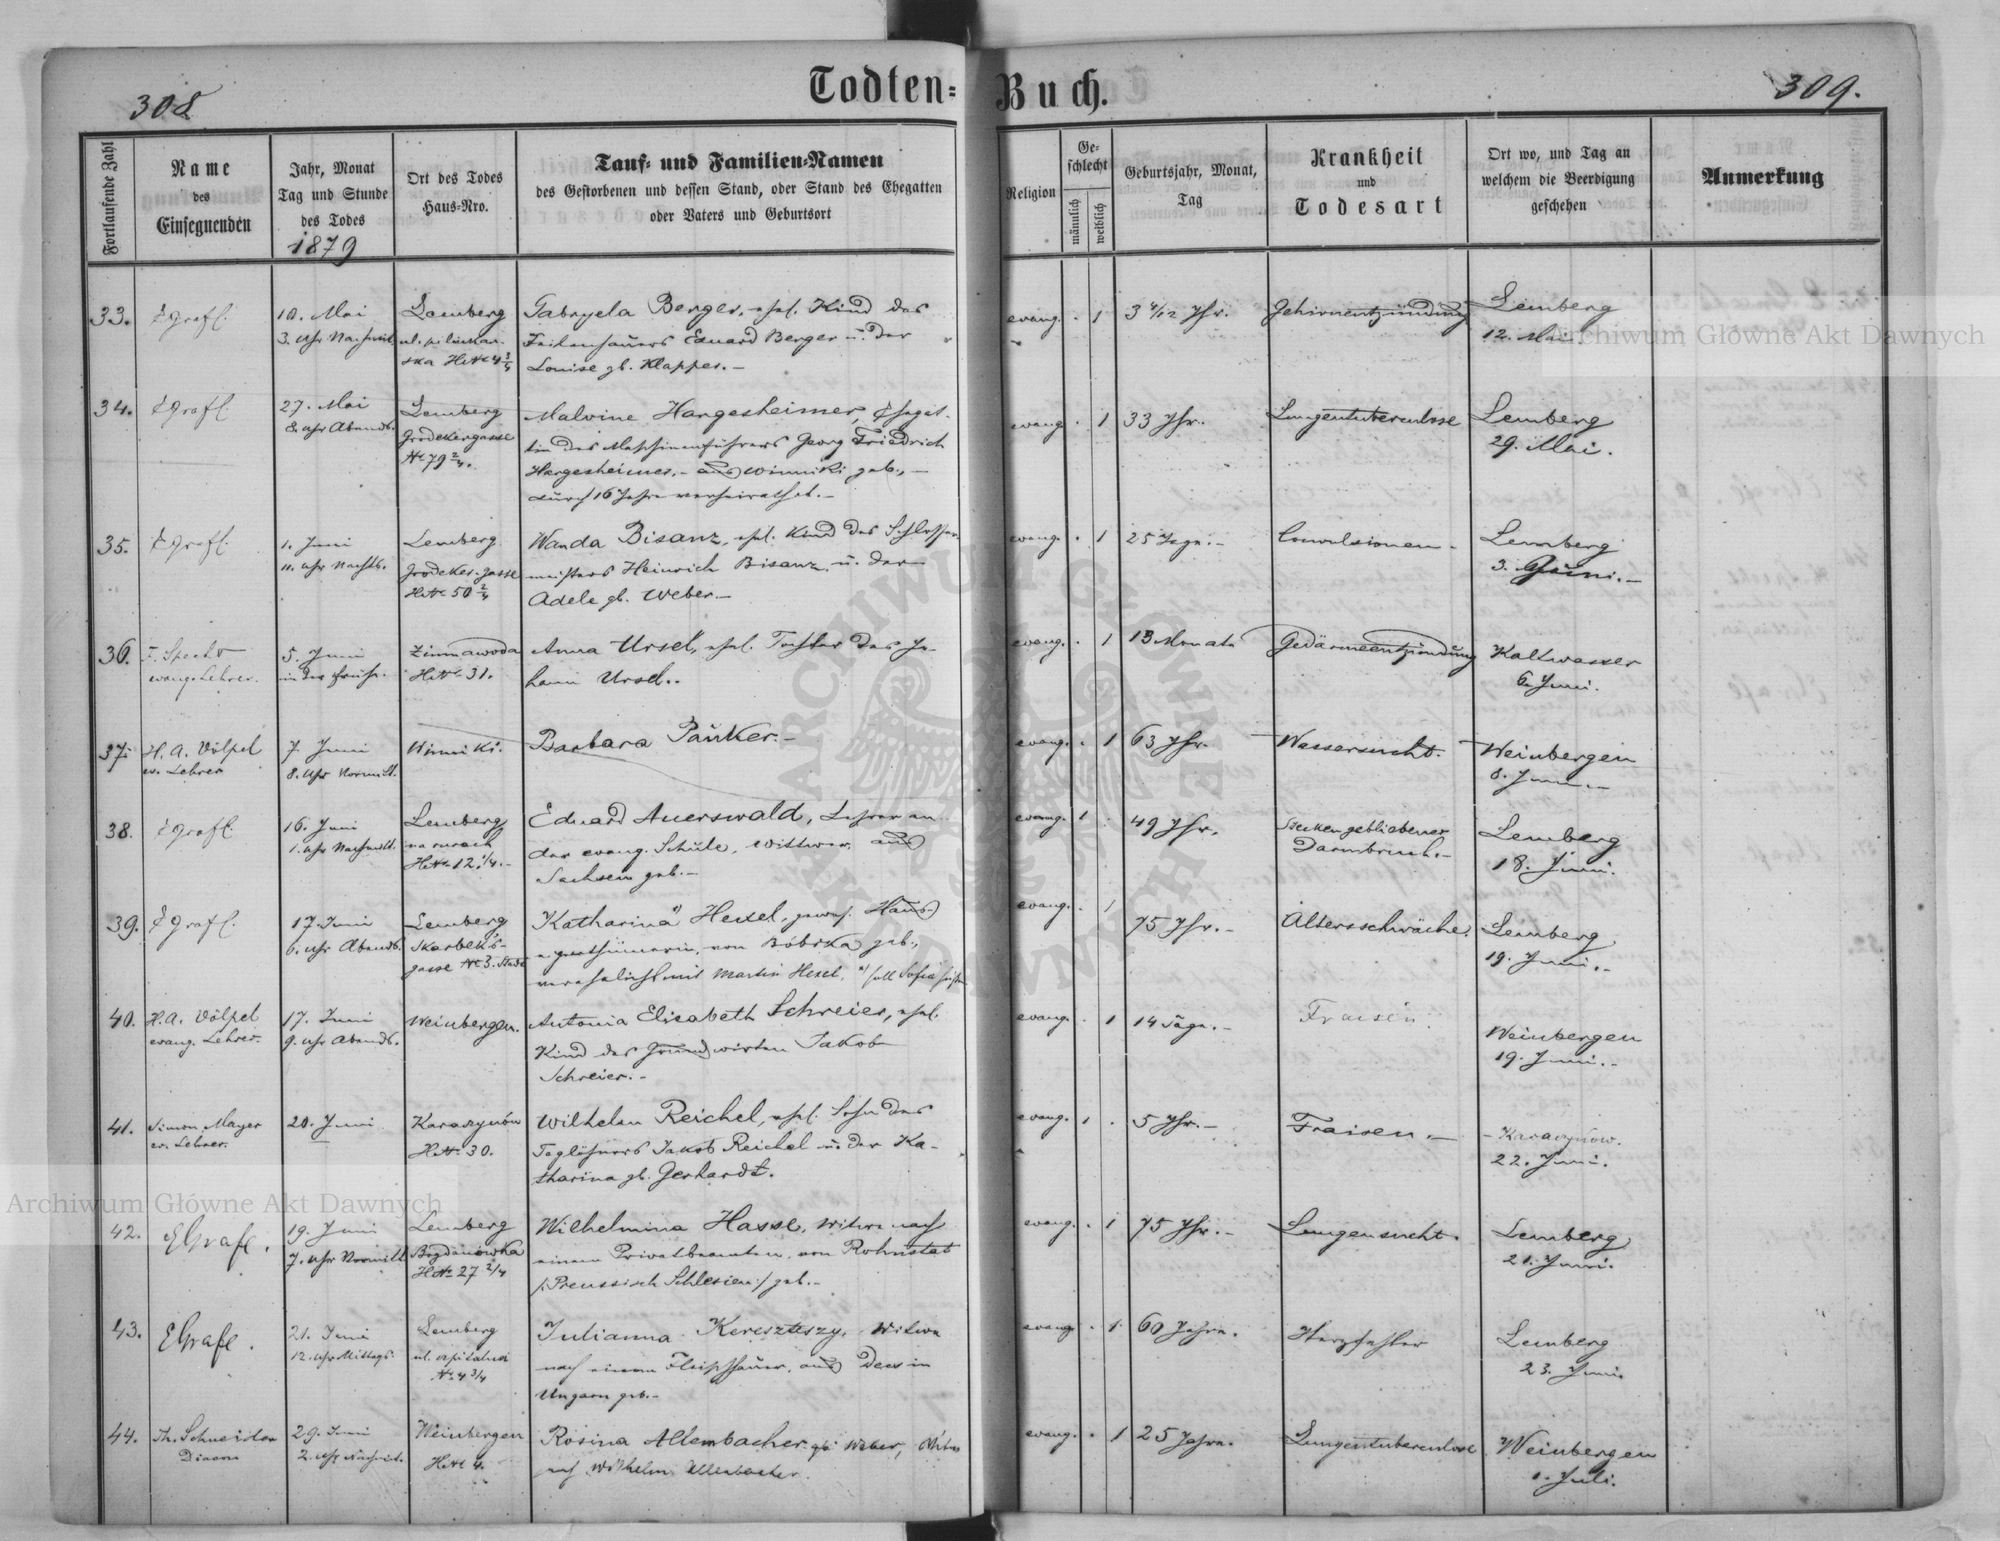 308
Todten-Buch.
309.
Fortlaufende Zahl
Name
des
Einsegnenden
Jahr, Monat
Tag und Stunde
des Todes
1879
Ort des Todes
Haus-Nro.
Tauf- und Familien-Namen
des Gestorbenen und dessen Stand, oder Stand des Ehegatten
oder Vaters und Geburtsort
Religion
Ge-
schlecht
männlich
weiblich
Geburtsjahr, Monat,
Tag
Krankheit
und
Todesart
Ort wo, und Tag an
welchem die Beerdigung
geschehen
Anmerkung
33. EGrafl. 10. Mai Lemberg Gabryela Berger, ehel. Kind des evang. 1 3 4/12 Jhr. Gehirnentzündung Lemberg
3. Uhr Nachmitt. ul. Feilenhauers Eduard Berger u. der 12. Mai
ska HNr 4 3/4 Louise gb. Klapper.-
34. EGrafl. 27. Mai Lemberg Malvine Hargesheimer, Ehegat- evang. 1 33 Jhr. Lungentuberculose Lemberg
8. Uhr Abends. Grodekergasse tin des Maschinenführers Georg Friedrich 29. Mai.
Nr 79 2/4. Hargesheimer.- aus Winniki geb.,-
durch 16 Jahre verheirathet.-
35. EGrafl. 1. Juni Lemberg Wanda Bisanz, ehel. Kind des Schlosser- evang. 1 25 Tage.- Convulsionen- Lemberg
11. Uhr Nachts. Grodeker-gasse meisters Heinrich Bisanz u. der 3. Juni.-
HNr 50 2/4 Adele gb. Weber.-
36. F. Specht 5. Juni Zimnawoda Anna Ursel, ehel. Tochter des Jo- evang. 1 13 Monate Gedärmeentzündung Kaltwasser
evang. Lehrer. in der Frühe. HNr 31. hann Ursel.. 6. Juni.
37. H. A. Völpel 7. Juni Winniki. Barbara Päuker.- evang. 1 63 Jhr. Wassersucht. Weinbergen
ev. Lehrer 8. Uhr Vormitt. 8. Juni.-
38. EGrafl. 16. Juni Lemberg Eduard Auerswald, Lehrer an evang. 1 49 Jhr. Steckengebliebener Lemberg
1. Uhr Nachmitt. na rurach der evang. Schule, Wittwer, aus Darmbruch.- 18. Juni.
HNr 12 1/4.- Sachsen geb.-
39. EGrafl. 17. Juni Lemberg Katharina *) Hexel, gewes. Haus- evang. 1 75 Jhr.- Altersschwäche. Lemberg
6. Uhr Abends. Skarbek's- eigenthümerin, von Bóbrka geb., 19. Juni.-
gasse Nr 3. Stadt verehelicht mit Martin Hexel. *) soll Sofia heißen
40. H. A. Völpel 17. Juni Weinbergen. Antonia Elisabeth Schreier, ehel. evang. 1 14 Tage.- Fraisen. Weinbergen
evang. Lehrer. 9. Uhr Abends. Kind des Grundwirten Jakob 19. Juni.-
Schreier.-
41. Simon Mayer 20. Juni Karaczynów Wilhelm Reichel, ehel. Sohn des evang. 1 5 Jhr.- Fraisen.- Karaczynow.
ev. Lehrer. HNr 30. Taglöhners Jakob Reichel u. der Ka- 22. Juni.
tharina gb. Gerhardt.
42. EGrafl. 19. Juni Lemberg Wilhelmina Hasse, Witwe nach evang. 1 75 Jhr.- Lungensucht. Lemberg
7. Uhr Vormitt. Bogdanówka einem Privatbeamten, von Rohnstat 21. Juni.
HNr 27 2/4 /:Preussisch Schlesien:/ geb.-
43. EGrafl. 21. Juni Lemberg Julianna Kereszteszy, Witwe evang. 1 60 Jahre. Herzfehler Lemberg
12. Uhr Mittags. ul. szpitalna nach einem Fleischhauer, aus Dees in 23. Juni.
Nr 4 3/4 Ungarn geb.-
44. Th. Schneider 29. Juni Weinbergen Rosina Allembacher gb. Weber, Witwe evang. 1 25 Jahre. Lungentuberculose Weinbergen
Diacon 2. Uhr Nachmit. HNr 4. nach Wilhelm Allenbacher. 1. Juli.
Archiwum Główne Akt Dawnych
Archiwum Główne Akt Dawnych
ARCHIWUM GŁÓWNE AKT DAWNYCH